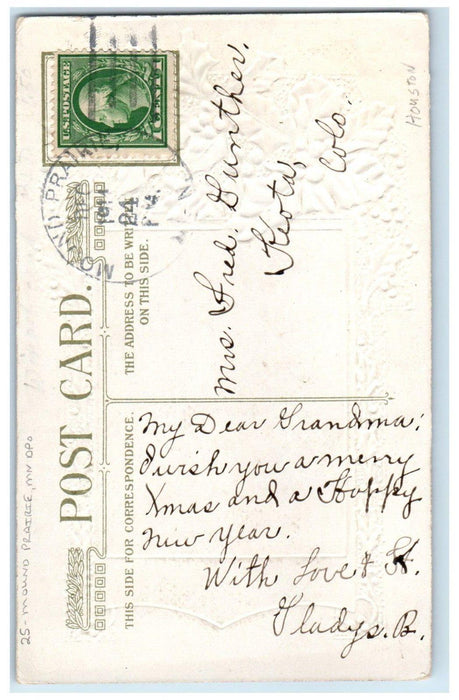 U.S. POSTAGE
MOUND PRAIRIE
24
1911
MINN
Houston
POST CARD.
THE ADDRESS TO BE WRITTEN
ON THIS SIDE.
Mrs. Fred. Gunther.
Keota,
Colo.
THIS SIDE FOR CORRESPONDENCE.
My Dear Grandma:
I wish you a merry
Xmas and a Happy
new year.
With Love &
Gladys. B.
25- MOUND PRAIRIE, MN DPO